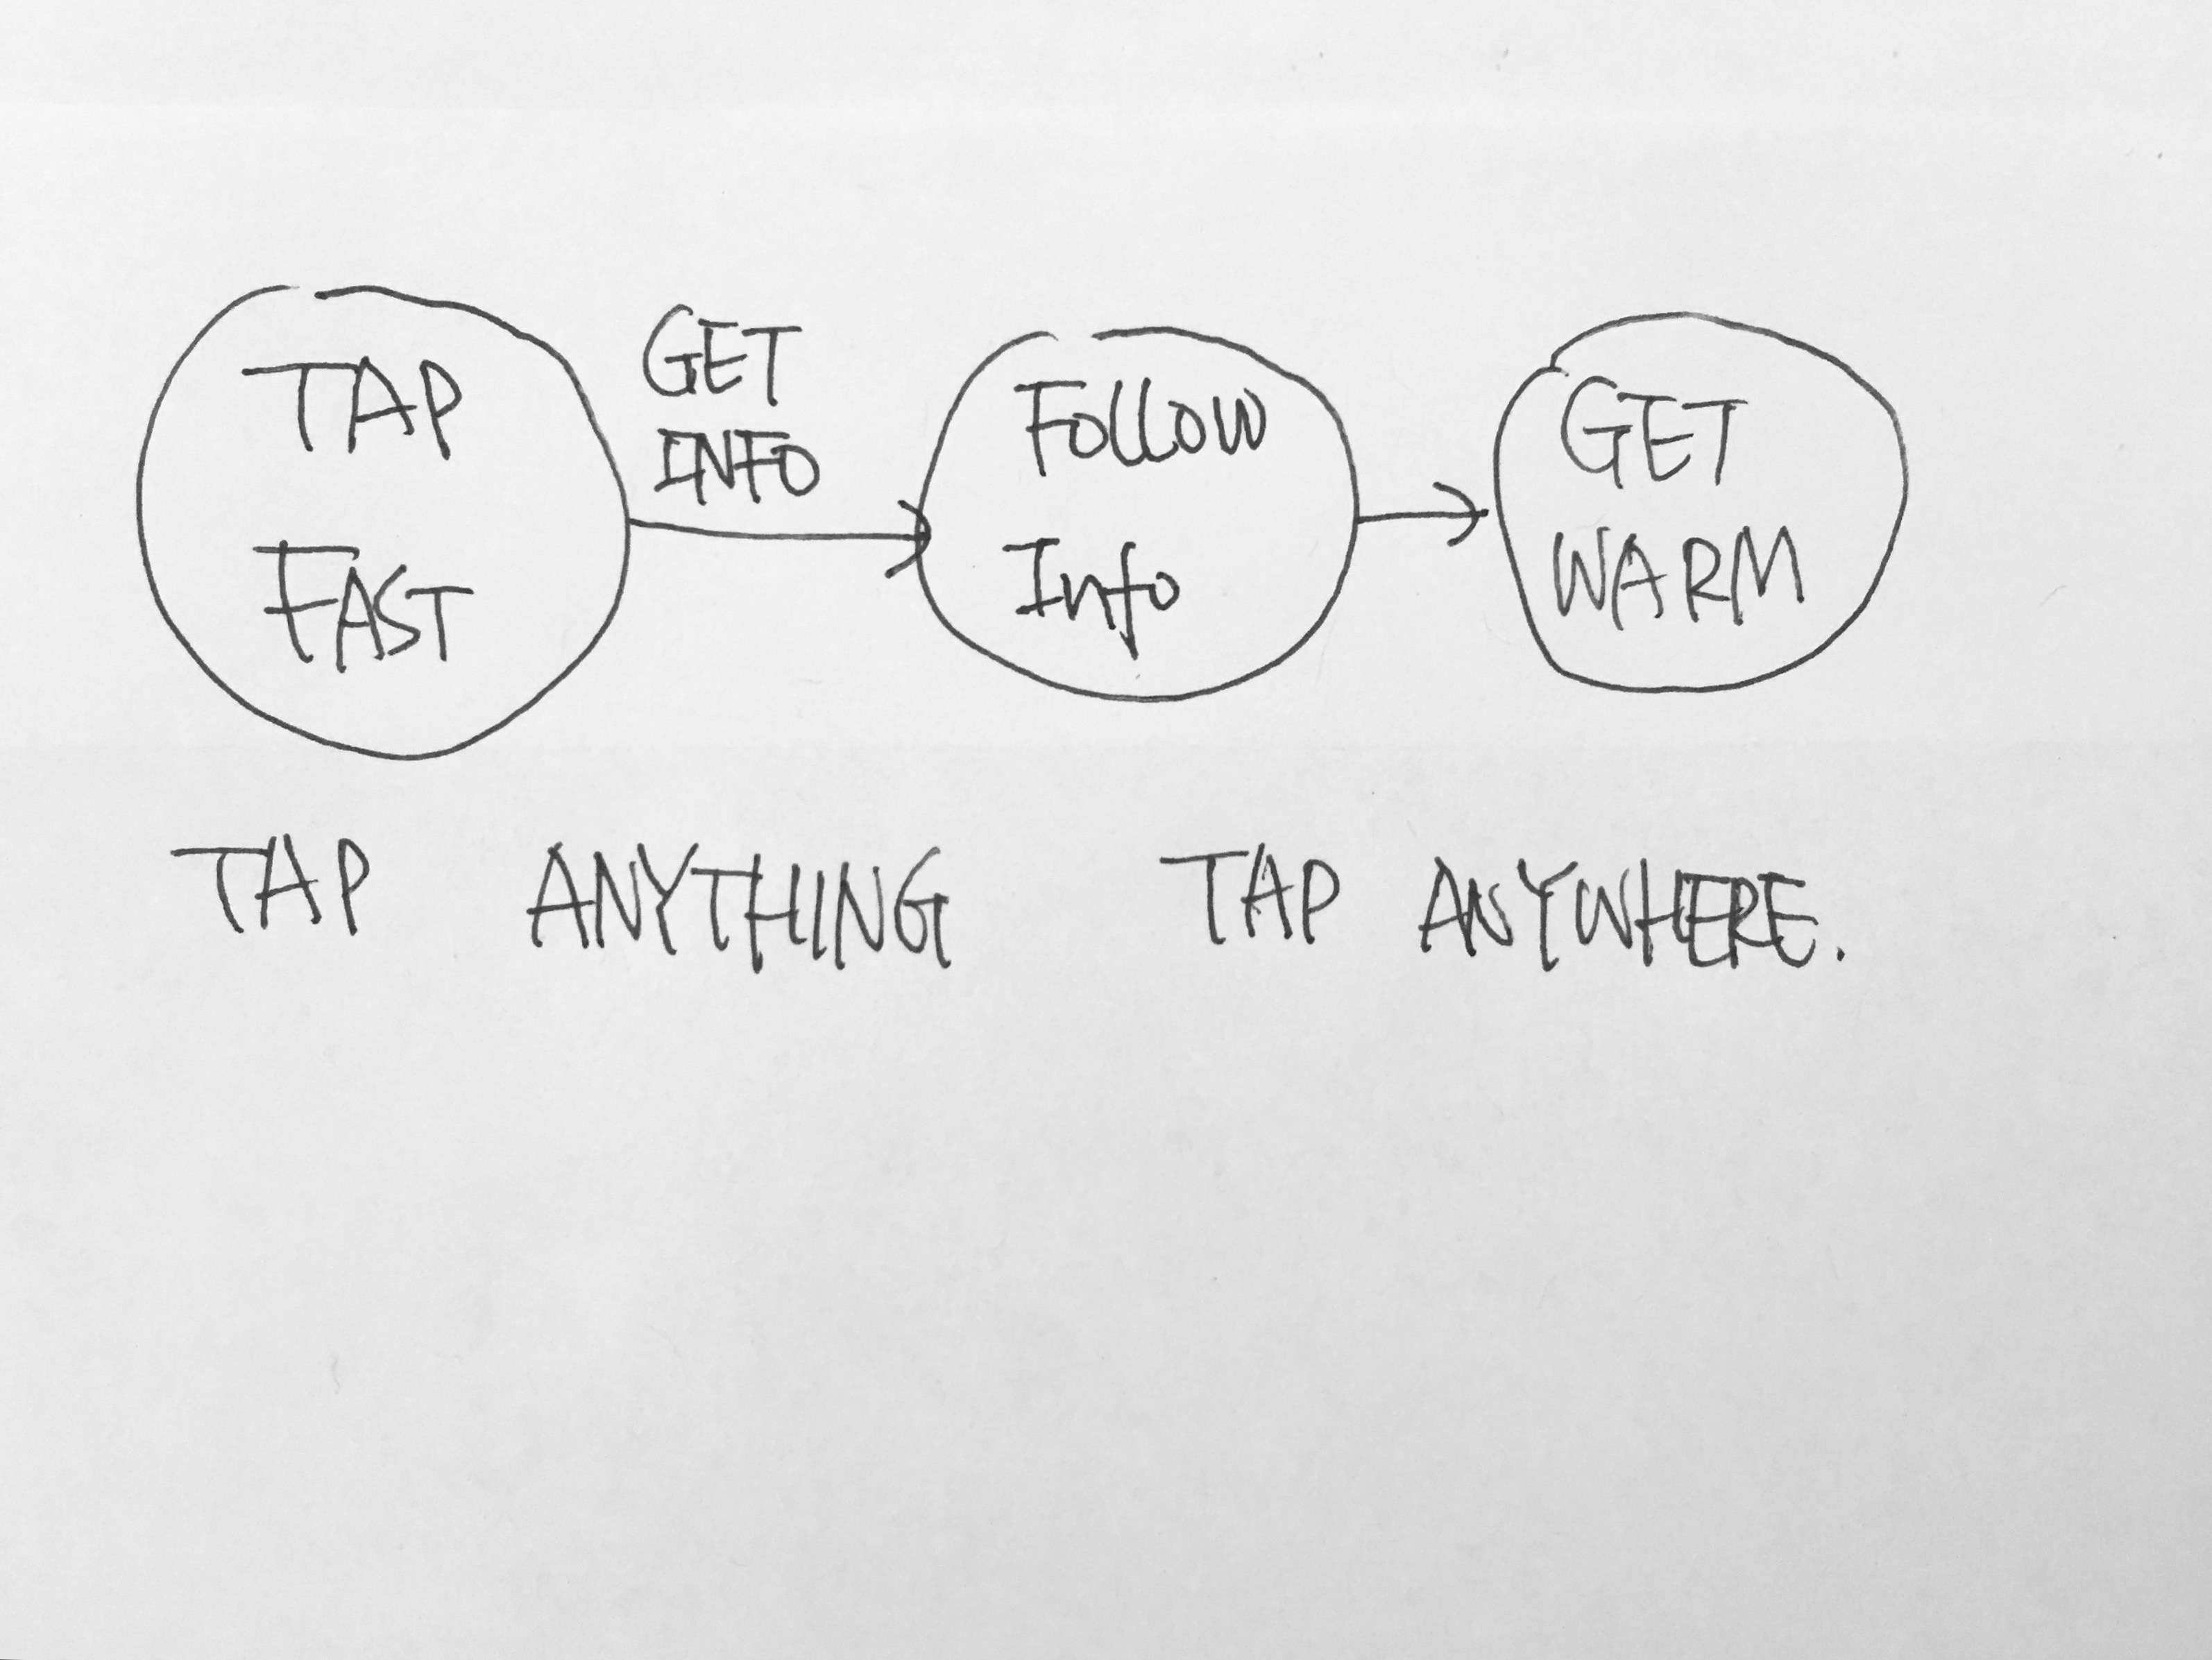 TAP
FAST
GET
INFO
Follow
Info
GET
WARM
TAP ANYTHING TAP ANYWHERE.